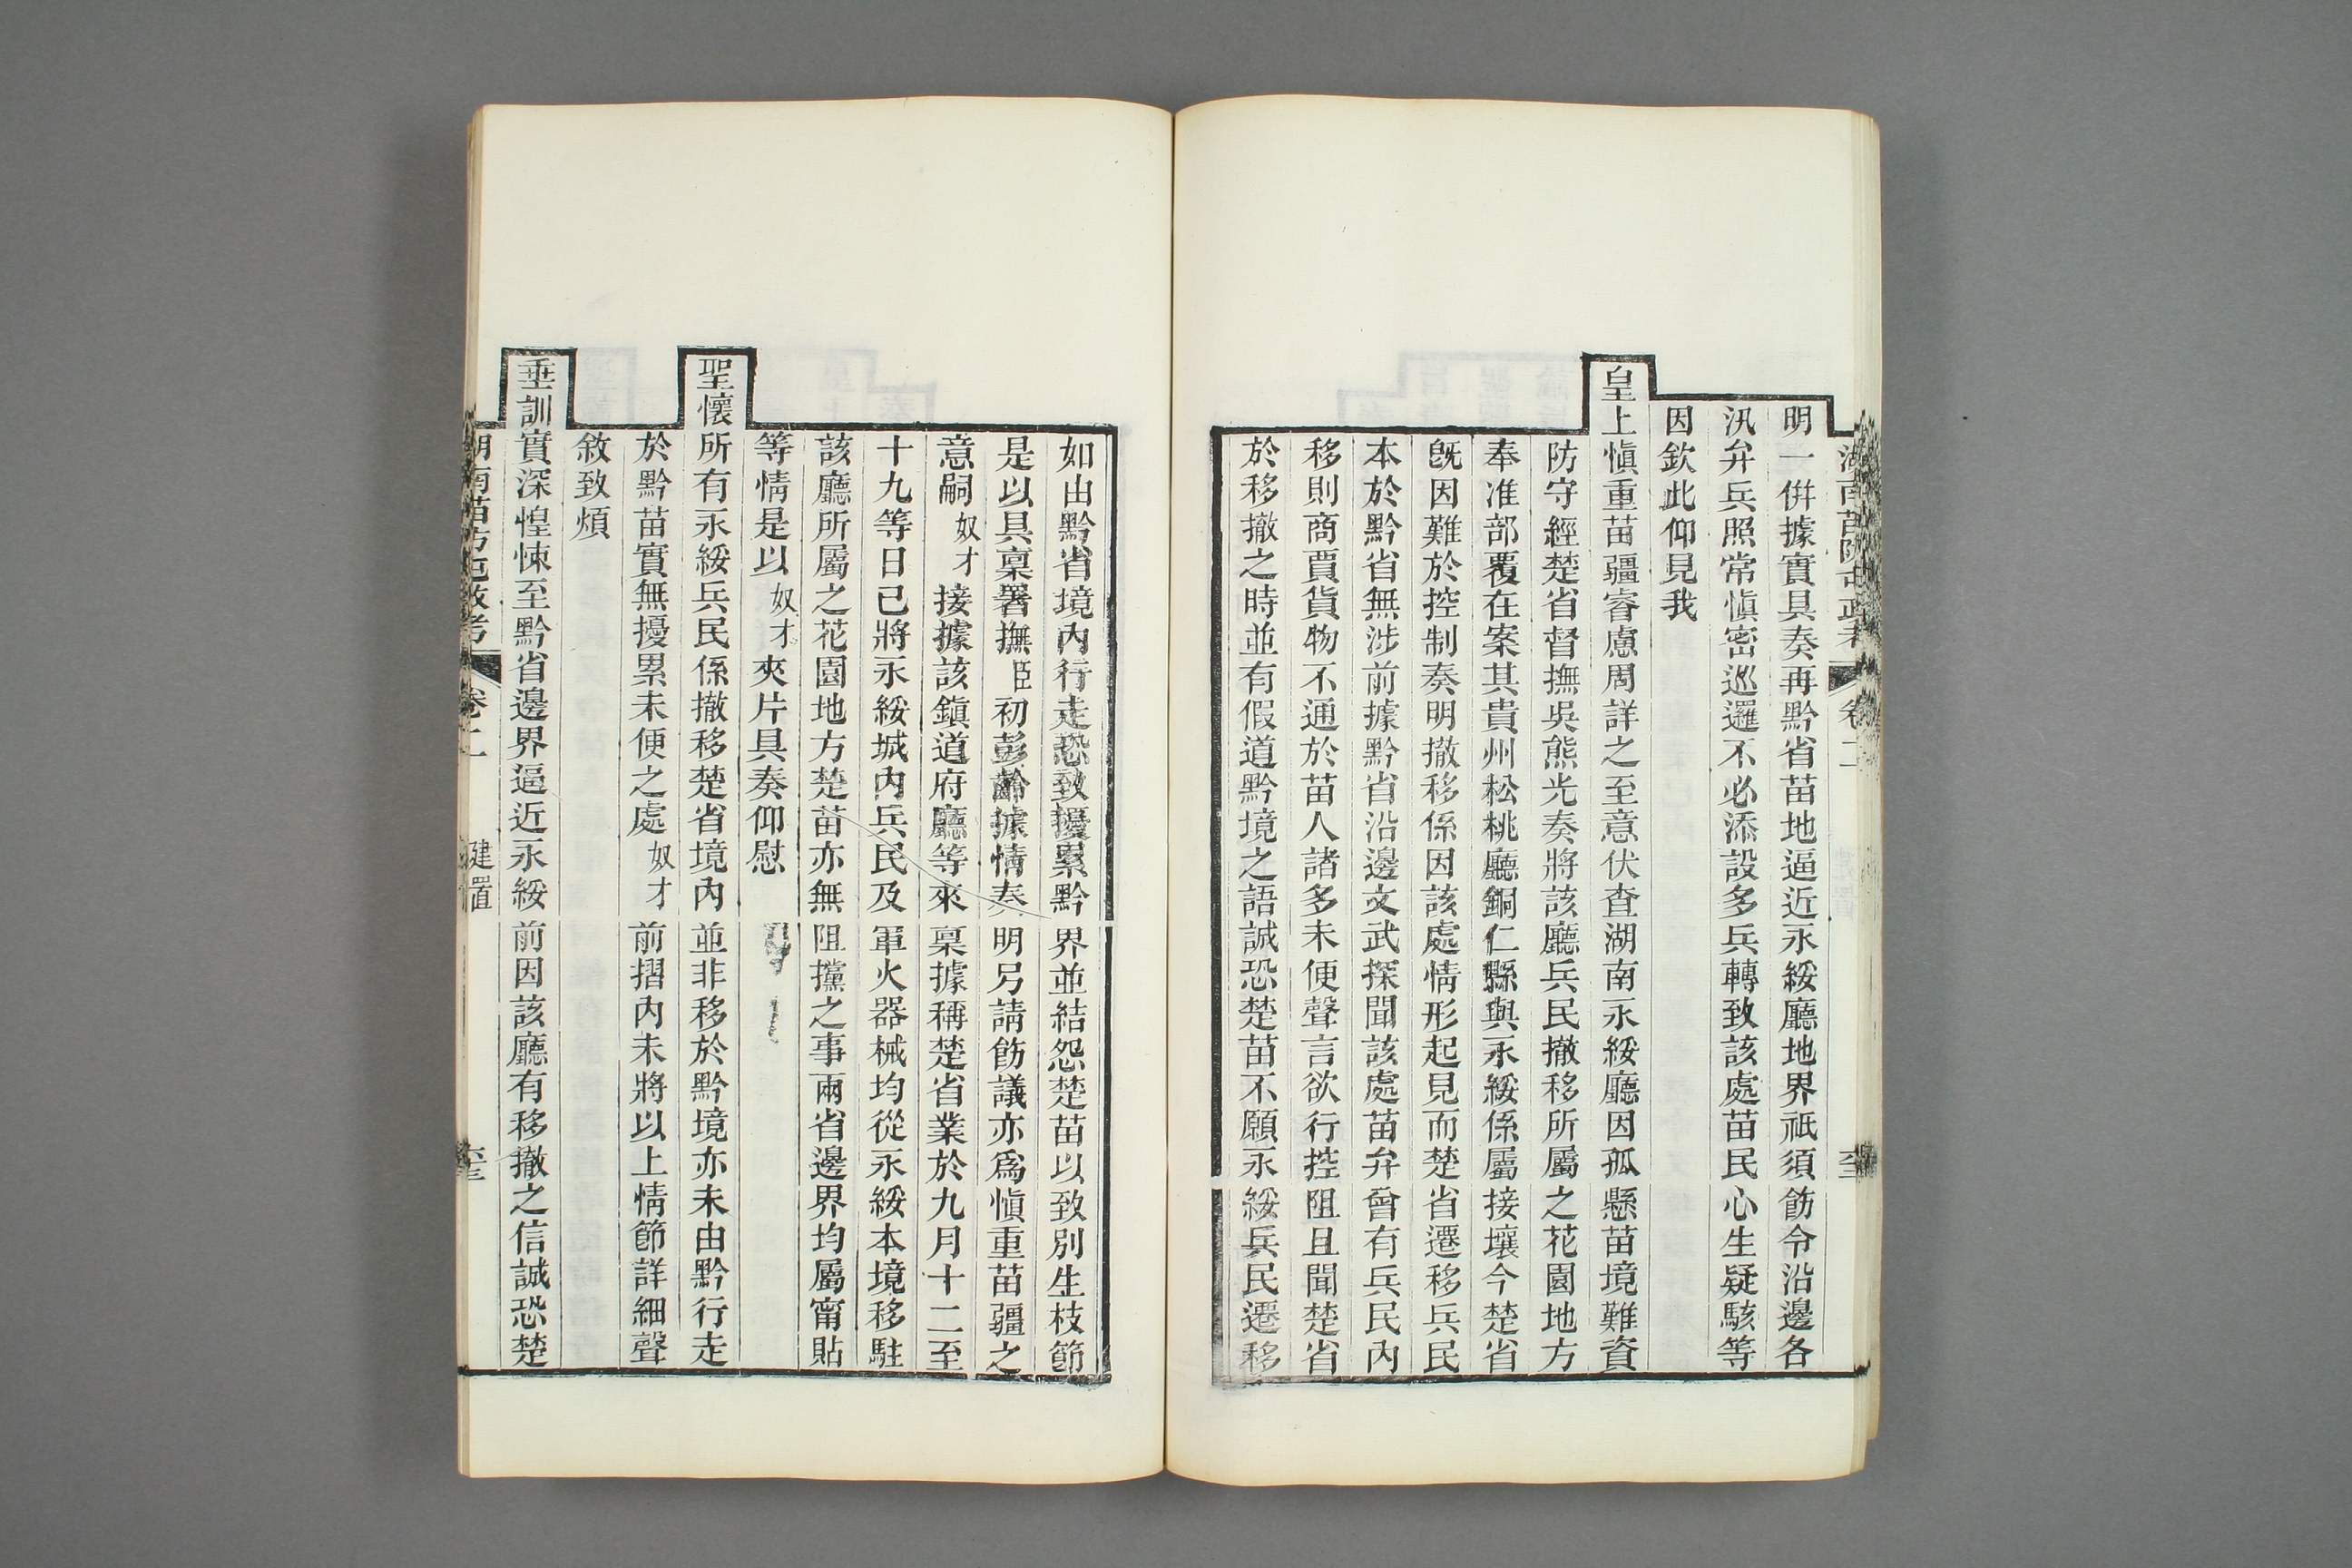 明一併據實具奏再黔省苗地逼近永綏廳地界祇須飭令沿邊各
汛弁兵照常愼密巡邏不必添設多兵轉致該處苗民心生疑駭等
因欽此仰見我
皇上愼重苗疆睿慮周詳之至意伏查湖南永綏廳因孤懸苗境難資
防守經楚省督撫吳熊光奏將該廳兵民撤移所屬之花園地方
奉准部覆在案其貴州松桃廳銅仁縣與永綏係屬接壤今楚省
旣因難於控制奏明撤移係因該處情形起見而楚省遷移兵民
本於黔省無涉前據黔省沿邊文武探聞該處苗弁曾有兵民內
移則商賈貨物不通於苗人諸多未便聲言欲行控阻且聞楚省
於移撤之時並有假道黔境之語誠恐楚苗不願永綏兵民遷移
如由黔省境內行走恐致擾累黔界並結怨楚苗以致別生枝節
是以具稟署撫臣初彭齡據情奏明另請飭議亦爲愼重苗疆之
意嗣奴才接據該鎮道府廳等來稟據稱楚省業於九月十二至
十九等日已將永綏城內兵民及軍火器械均從永綏本境移駐
該廳所屬之花園地方楚苗亦無阻攩之事兩省邊界均屬甯貼
等情是以奴才夾片具奏仰慰
聖懷所有永綏兵民係撤移楚省境內並非移於黔境亦未由黔行走
於黔苗實無擾累未便之處奴才前摺內未將以上情節詳細聲
敘致煩
垂訓實深惶悚至黔省邊界逼近永綏前因該廳有移撤之信誠恐楚
湖南苗防屯政考 卷二 建置